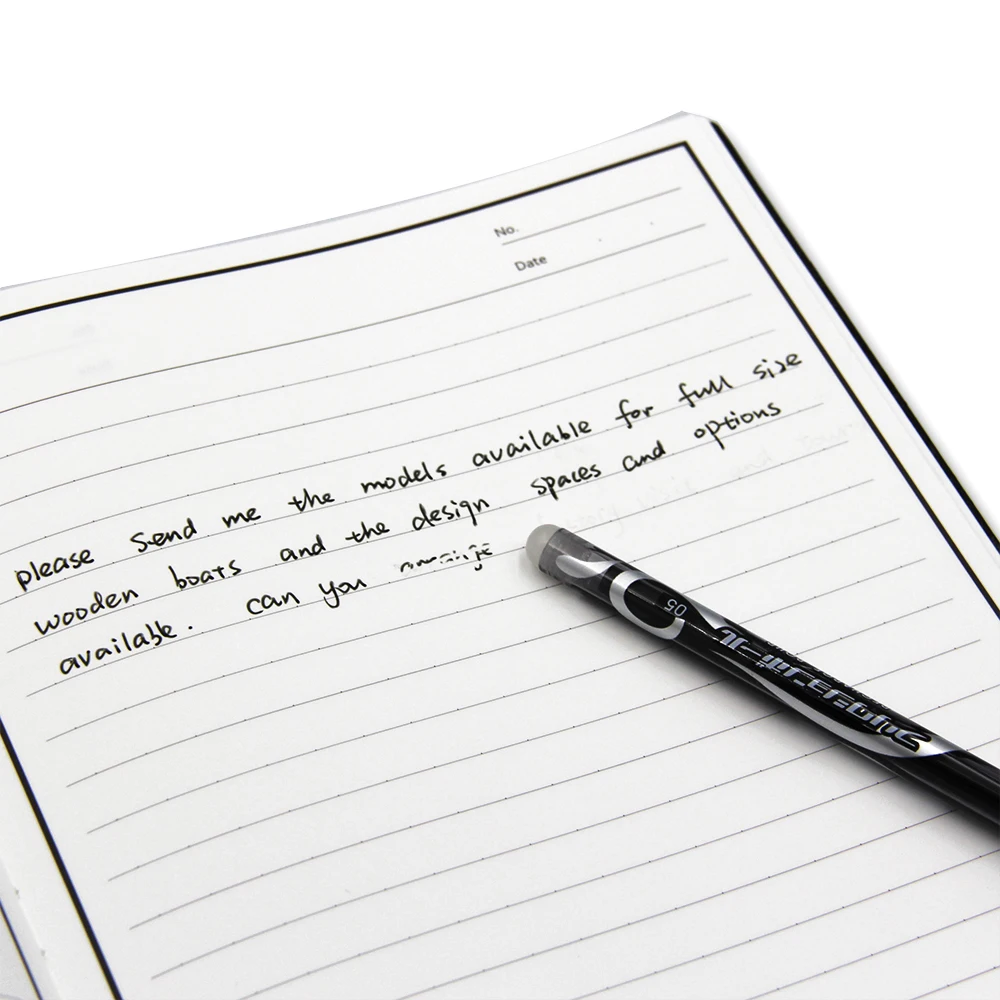 No.
Date
please send me the models available for full size
wooden boats and the design spaces and options
available. can you arrange
05